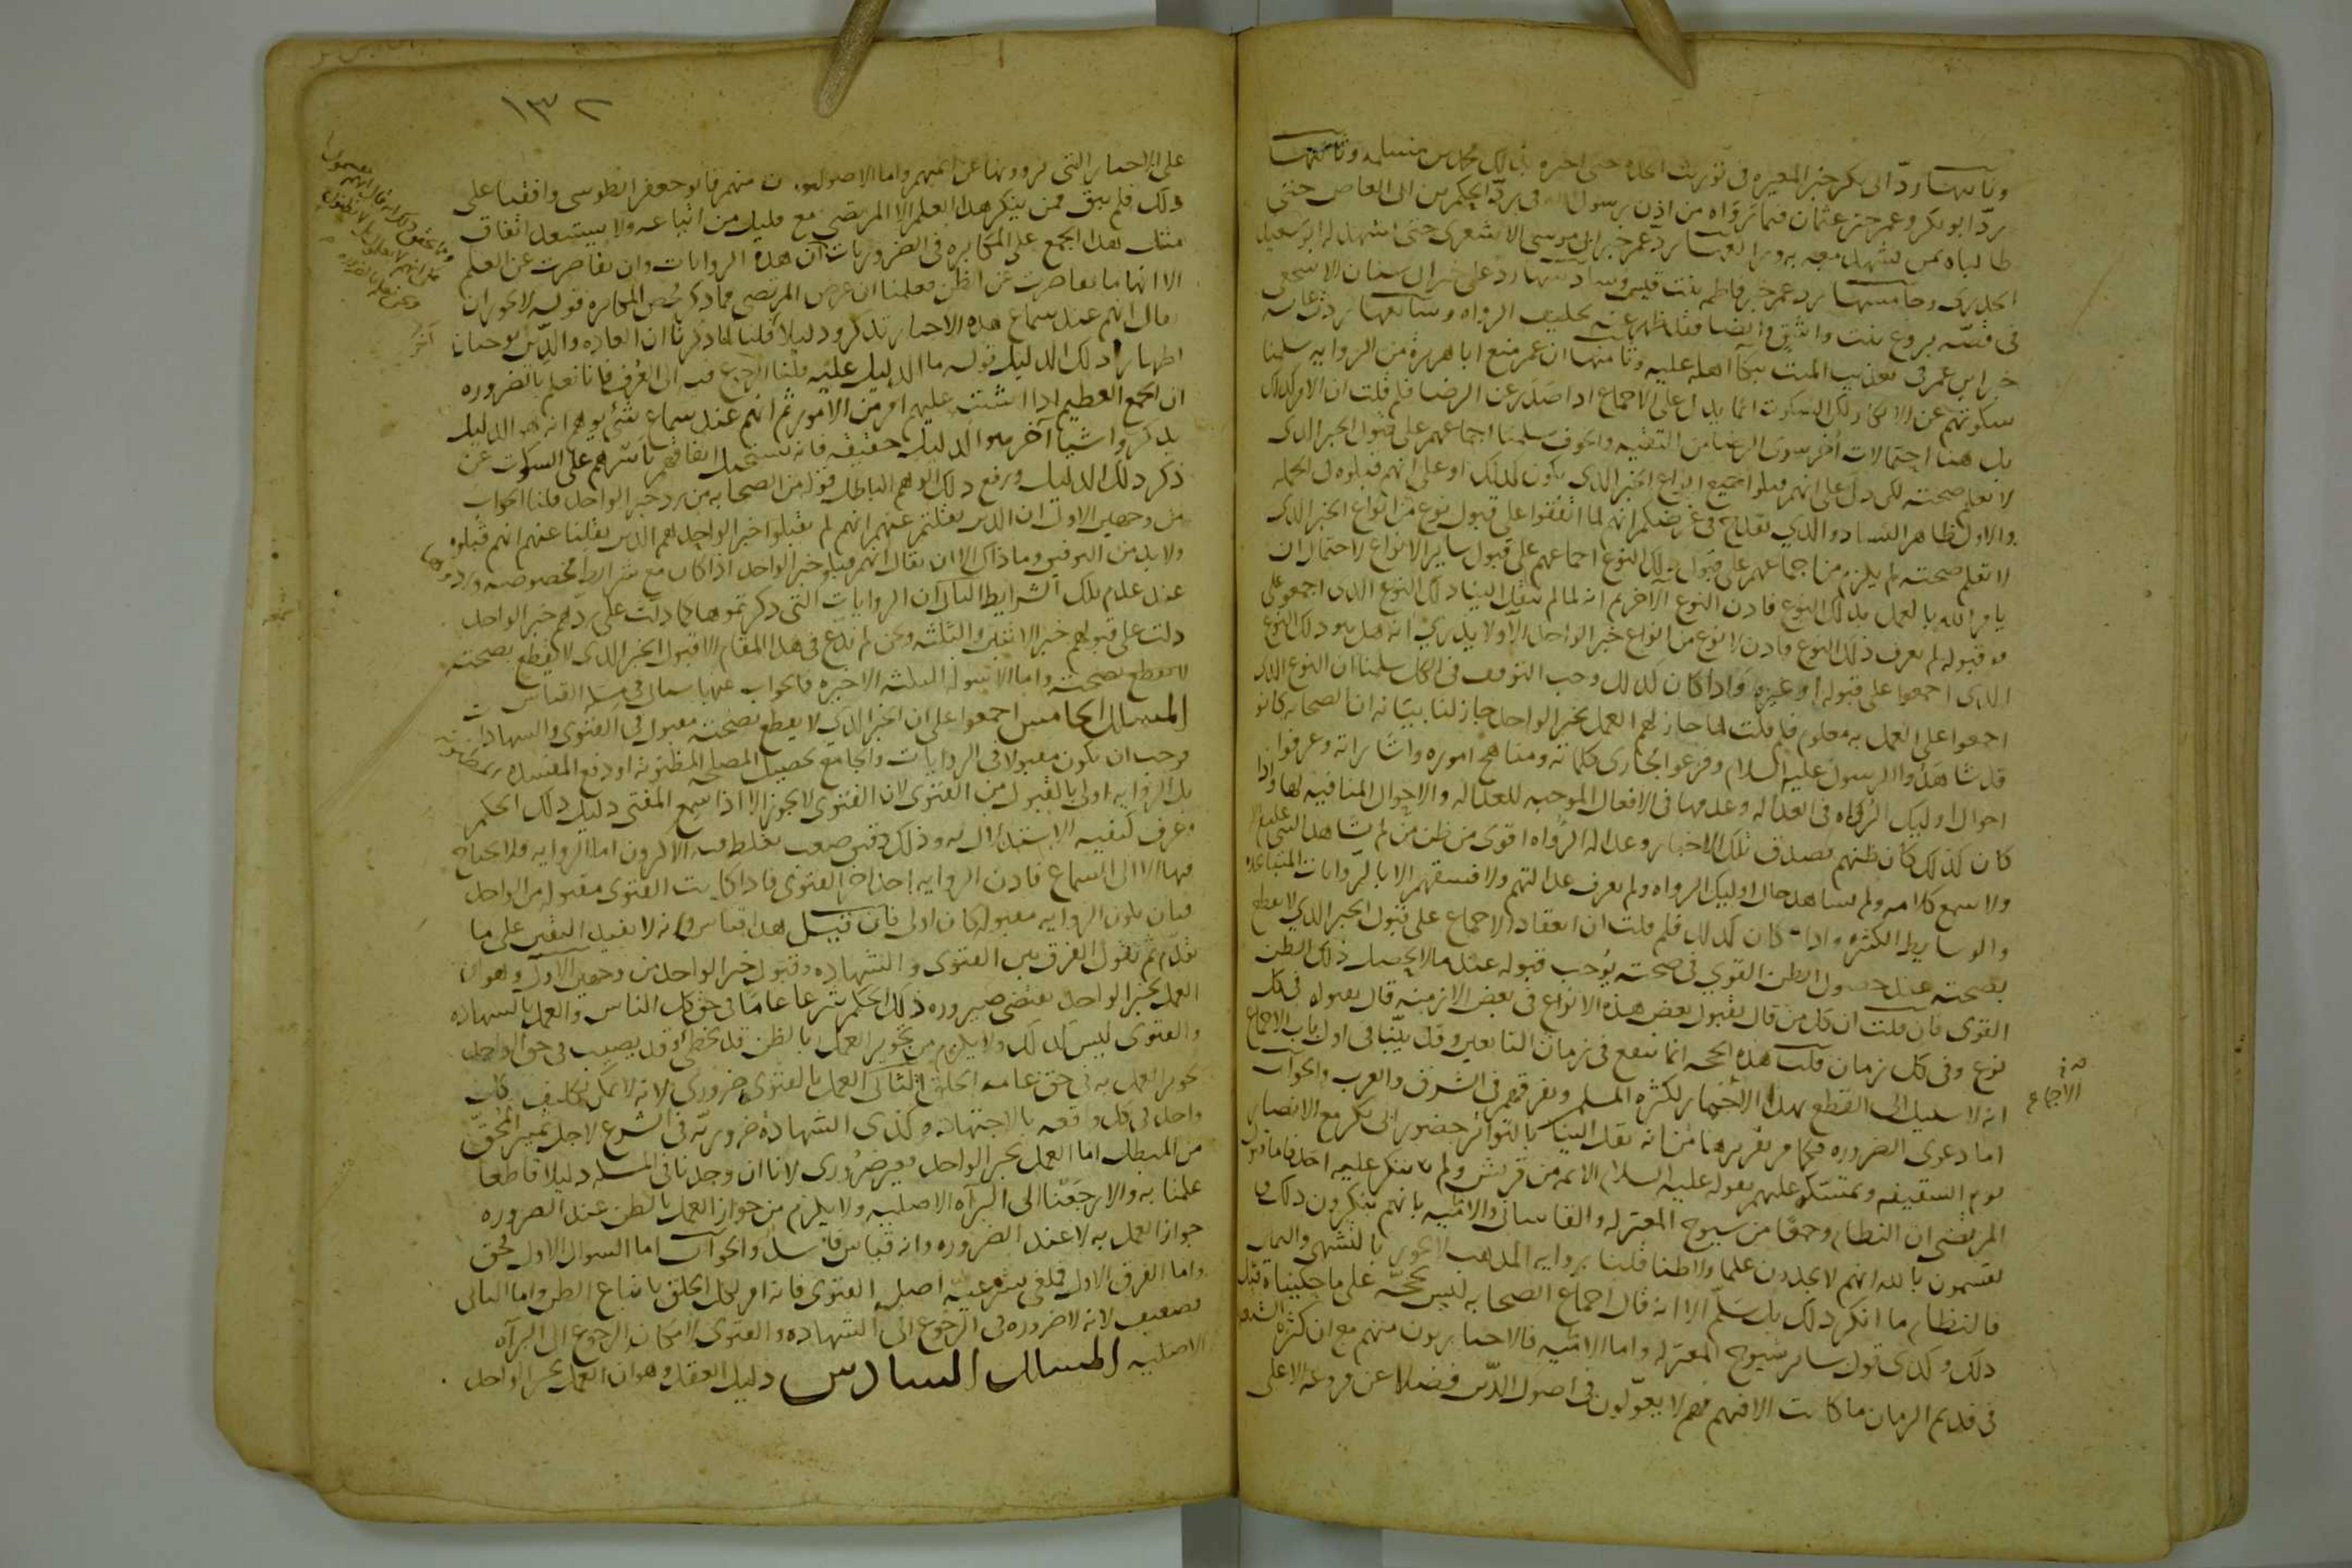 وثانيها ردّ ابى بكر خبر المغيره فى توريث الجده حتى اخبره بذلك محمد بن مسلمه وثالثها
ردّ ابو بكر وعمر خبر عثمان فيما رواه من اذن رسول الله فى ردّ الحكم بن ابى العاص حتى
طالباه بمن يشهد معه به ورابعها ردّ عمر خبر ابى موسى الاشعرى حتى شهد له ابو سعيد
الخدرى وخامسها رد عمر خبر فاطمه بنت قيس وسادسها رد على خبر ابى سنان الاشجعى
فى قصّه بروع بنت واشق وايضا فقد ظهر عنه تحليف الرواه وسابعها رد عائشه
خبر ابن عمر فى تعذيب الميت ببكا اهله عليه وثامنها ان عمر منع ابا هريرة من الروايه سلمنا
سكوتهم عن الانكار لكن السكوت انما يدل على الاجماع اذا صدر عن الرضا فلم قلت ان الامر كذلك
بل هنا احتمالات أخر سوى الرضا من التقيه والخوف سلمنا اجماعهم على قبول الخبر الذى
لا نعلم صحته لكن دل على انهم قبلوا جميع انواع الخبر الذى يكون كذلك او على انهم قبلوه فى الجمله
والاول ظاهر الفساد والذى يقدح فى غرضكم انهم لما اتفقوا على قبول نوع من انواع الخبر الذى
لا تعلم صحته لم يلزم من اجماعهم على قبول ذلك النوع اجماعهم على قبول ساير الانواع لاحتمال ان
يامر الله بالعمل بذلك النوع فاذن النوع الآخر ثم انه لما لم ينقل الينا ذلك النوع الذى اجمعوا على
قبوله لم نعرف ذلك النوع فاذن لا نوع من انواع خبر الواحد الا ولا يدرى انه هل هو ذلك النوع
الذى اجمعوا على قبوله او غيره واذا كان كذلك وجب التوقف فى الكل سلمنا ان النوع الذى
اجمعوا على العمل به معلوم فلم قلت لما جاز لهم العمل بخبر الواحد جاز لنا بيانه ان الصحابه كانوا
قد شاهدوا الرسول عليه السلام وعرفوا مجارى كلماته ومناهج اموره واشاراته وعرفوا
احوال اوليك الرواه فى العداله وعدمها فى الافعال الموجبه للعداله والاحوال المنافيه لها واذا
كان كذلك كان ظنهم بصدق تلك الاخبار وعداله الرواه اقوى من ظن من لم يشاهد النبى عليه السلم
ولا سمع كلامه ولم يشاهد حال اوليك الرواه ولم يعرف عدالتهم ولا فسقهم الا بالروايات المتباعده
والوسايط الكثيره واذا كان كذلك فلم قلت ان انعقاد الاجماع على قبول الخبر الذى لا يقطع
بصحته عند حصول الظن القوى فى صحته يوجب قبوله عند ما لا يحصل ذلك الظن
القوى فان قلت ان كل من قال بقبول بعض هذه الانواع فى بعض الازمنه قال بقبوله فى كل
نوع وفى كل زمان قلت هذه الحجه انما تنفع فى زمان التابعين وقد بيّنا فى اول باب الاجماع
انه لا سبيل الى القطع بهذا الاجماع لكثره المسلمين وتفرقهم فى الشرق والغرب والجواب
الاجماع
اما دعوى الضروره فكما مر تقريرها من انه نقل الينا بالتواتر حضور ابى بكر مع الانصار
يوم السقيفه وتمسكه عليهم بقوله عليه السلام الائمه من قريش ولم ينكر عليه احد فاما قول
المرتضى ان النظام وجمعا من شيوخ المعتزله والقاسانى والاماميه بانهم ينكرون ذلك و
يقسمون بالله انهم لا يجدون علما ولا ظنا قلنا روايه المذهب لا تجوز بالتشهى والتمنى
فالنظام ما انكر ذلك بل سلّم الا انه قال اجماع الصحابه ليس بحجّه على ما حكيناه قبل
ذلك وكذى قول ساير شيوخ المعتزله واما الاماميه فالاخباريون منهم مع ان كثره الشيعه
فى قديم الزمان ما كانت الا منهم فهم لا يعوّلون فى اصول الدّين فضلا عن فروعه الا على
١٣٢
على الاخبار التى يروونها عن ائمتهم واما الاصوليون منهم فابو جعفر الطوسى وافقنا على
ذلك فلم يبق ممن ينكر هذا العلم الا المرتضى مع قليل من اتباعه ولا يستبعد اتفاق
مثل هذا الجمع على المكابره فى الضروريات آن هذه الروايات وان تقاصرت عن العلم
الا انها ما تقاصرت عن الظن فعلمنا ان غرض المرتضى مما ذكر محض المكابره قوله لا يجوز ان
يقال انهم عند سماع هذه الاخبار تذكروا دليلا قلنا لما ذكرنا ان العاده والدّين يوجبان
اظهار ذلك الدليل قوله ما الدليل عليه قلنا الرجوع فيه الى العرف فانا نعلم بالضروره
ان الجمع العظيم اذا اشتبه عليهم امر من الامور ثم انهم عند سماع شئ يوهم انه هو الدليل
يذكروا شيا آخر هو الدليل حقيقه فانه يستحيل اتفاقهم باسرهم على السكوت عن
ذكر ذلك الدليل ورفع ذلك الوهم الباطل قوله من الصحابه من رد خبر الواحد قلنا الجواب
من وجهين الاول ان الذين نقلتم عنهم انهم لم يقبلوا خبر الواحد هم الذين نقلنا عنهم انهم قبلوه
ولا بد من التوفيق وما ذاك الا ان يقال انهم قبلوا خبر الواحد اذا كان مع شرايط مخصوصه وردوها
عند عدم تلك الشرايط الثانى ان الروايات التى ذكرتموها كما دلت على ردهم خبر الواحد
دلت على قبولهم خبر الاثنين والثلثه ونحن لم ندّع فى هذا المقام الا قبول الخبر الذى لا يقطع بصحته
لا يقطع بصحته واما الاسوله الثلثه الاخيره فالجواب عنها سيأتى فى مسله القياس
المسلك الخامس اجمعوا على ان الخبر الذى لا يقطع بصحته مقبول فى الفتوى والشهادات
فوجب ان يكون مقبولا فى الروايات والجامع تحصيل المصلحه المظنونه او دفع المفسده المظنونه
بل الروايه اولى بالقبول من الفتوى لان الفتوى لا يجوز الا اذا سمع المفتى دليل ذلك الحكم
وعرف كيفيه الاستدلال به وذلك دقيق صعب يغلط فيه الاكثرون اما الروايه فلا يحتاج
فيها الا الى السماع فاذن الروايه احد اجزا الفتوى فاذا كانت الفتوى مقبوله من الواحد
فبان تكون الروايه مقبوله كان اولى فان قيل هذا قياس وانه لا يفيد اليقين على ما
تقدّم ثم نقول الفرق بين الفتوى والشهاده وقبول خبر الواحد من وجهين الاول وهو ان
العمل بخبر الواحد يقتضى صيروره ذلك الحكم شرعا عامًا فى حق كل الناس والعمل بالشهاده
والفتوى ليس كذلك ولا يلزم من تجويز العمل بالظن قد يخطئ وقد يصيب فى حق الواحد
تجويز العمل به فى حق عامه الخلق الثانى العمل بالفتوى ضرورى لانه لا يمكن تكليف كل
واحد فى كل واقعه بالاجتهاد وكذى الشهادة ضروريّه فى الشرع لاجل تمييز المحقّ
من المبطل اما العمل بخبر الواحد فغير ضرورى لانا ان وجدنا فى المسله دليلا قاطعا
علمنا به والا رجعنا الى البرآه الاصليه ولا يلزم من جواز العمل بالظن عند الضروره
جواز العمل به لا عند الضروره وانه قياس فاسد والجواب اما السوال الاول فحق
واما الفرق الاول فملغى بشرعيه اصل الفتوى فانه امر لكل الخلق باتباع الظن واما الثانى
فضعيف لانه لا ضروره فى الرجوع الى الشهاده والفتوى لامكان الرجوع الى البرآه
الاصليه المسلك السادس دليل العقل وهو ان العمل بخبر الواحد